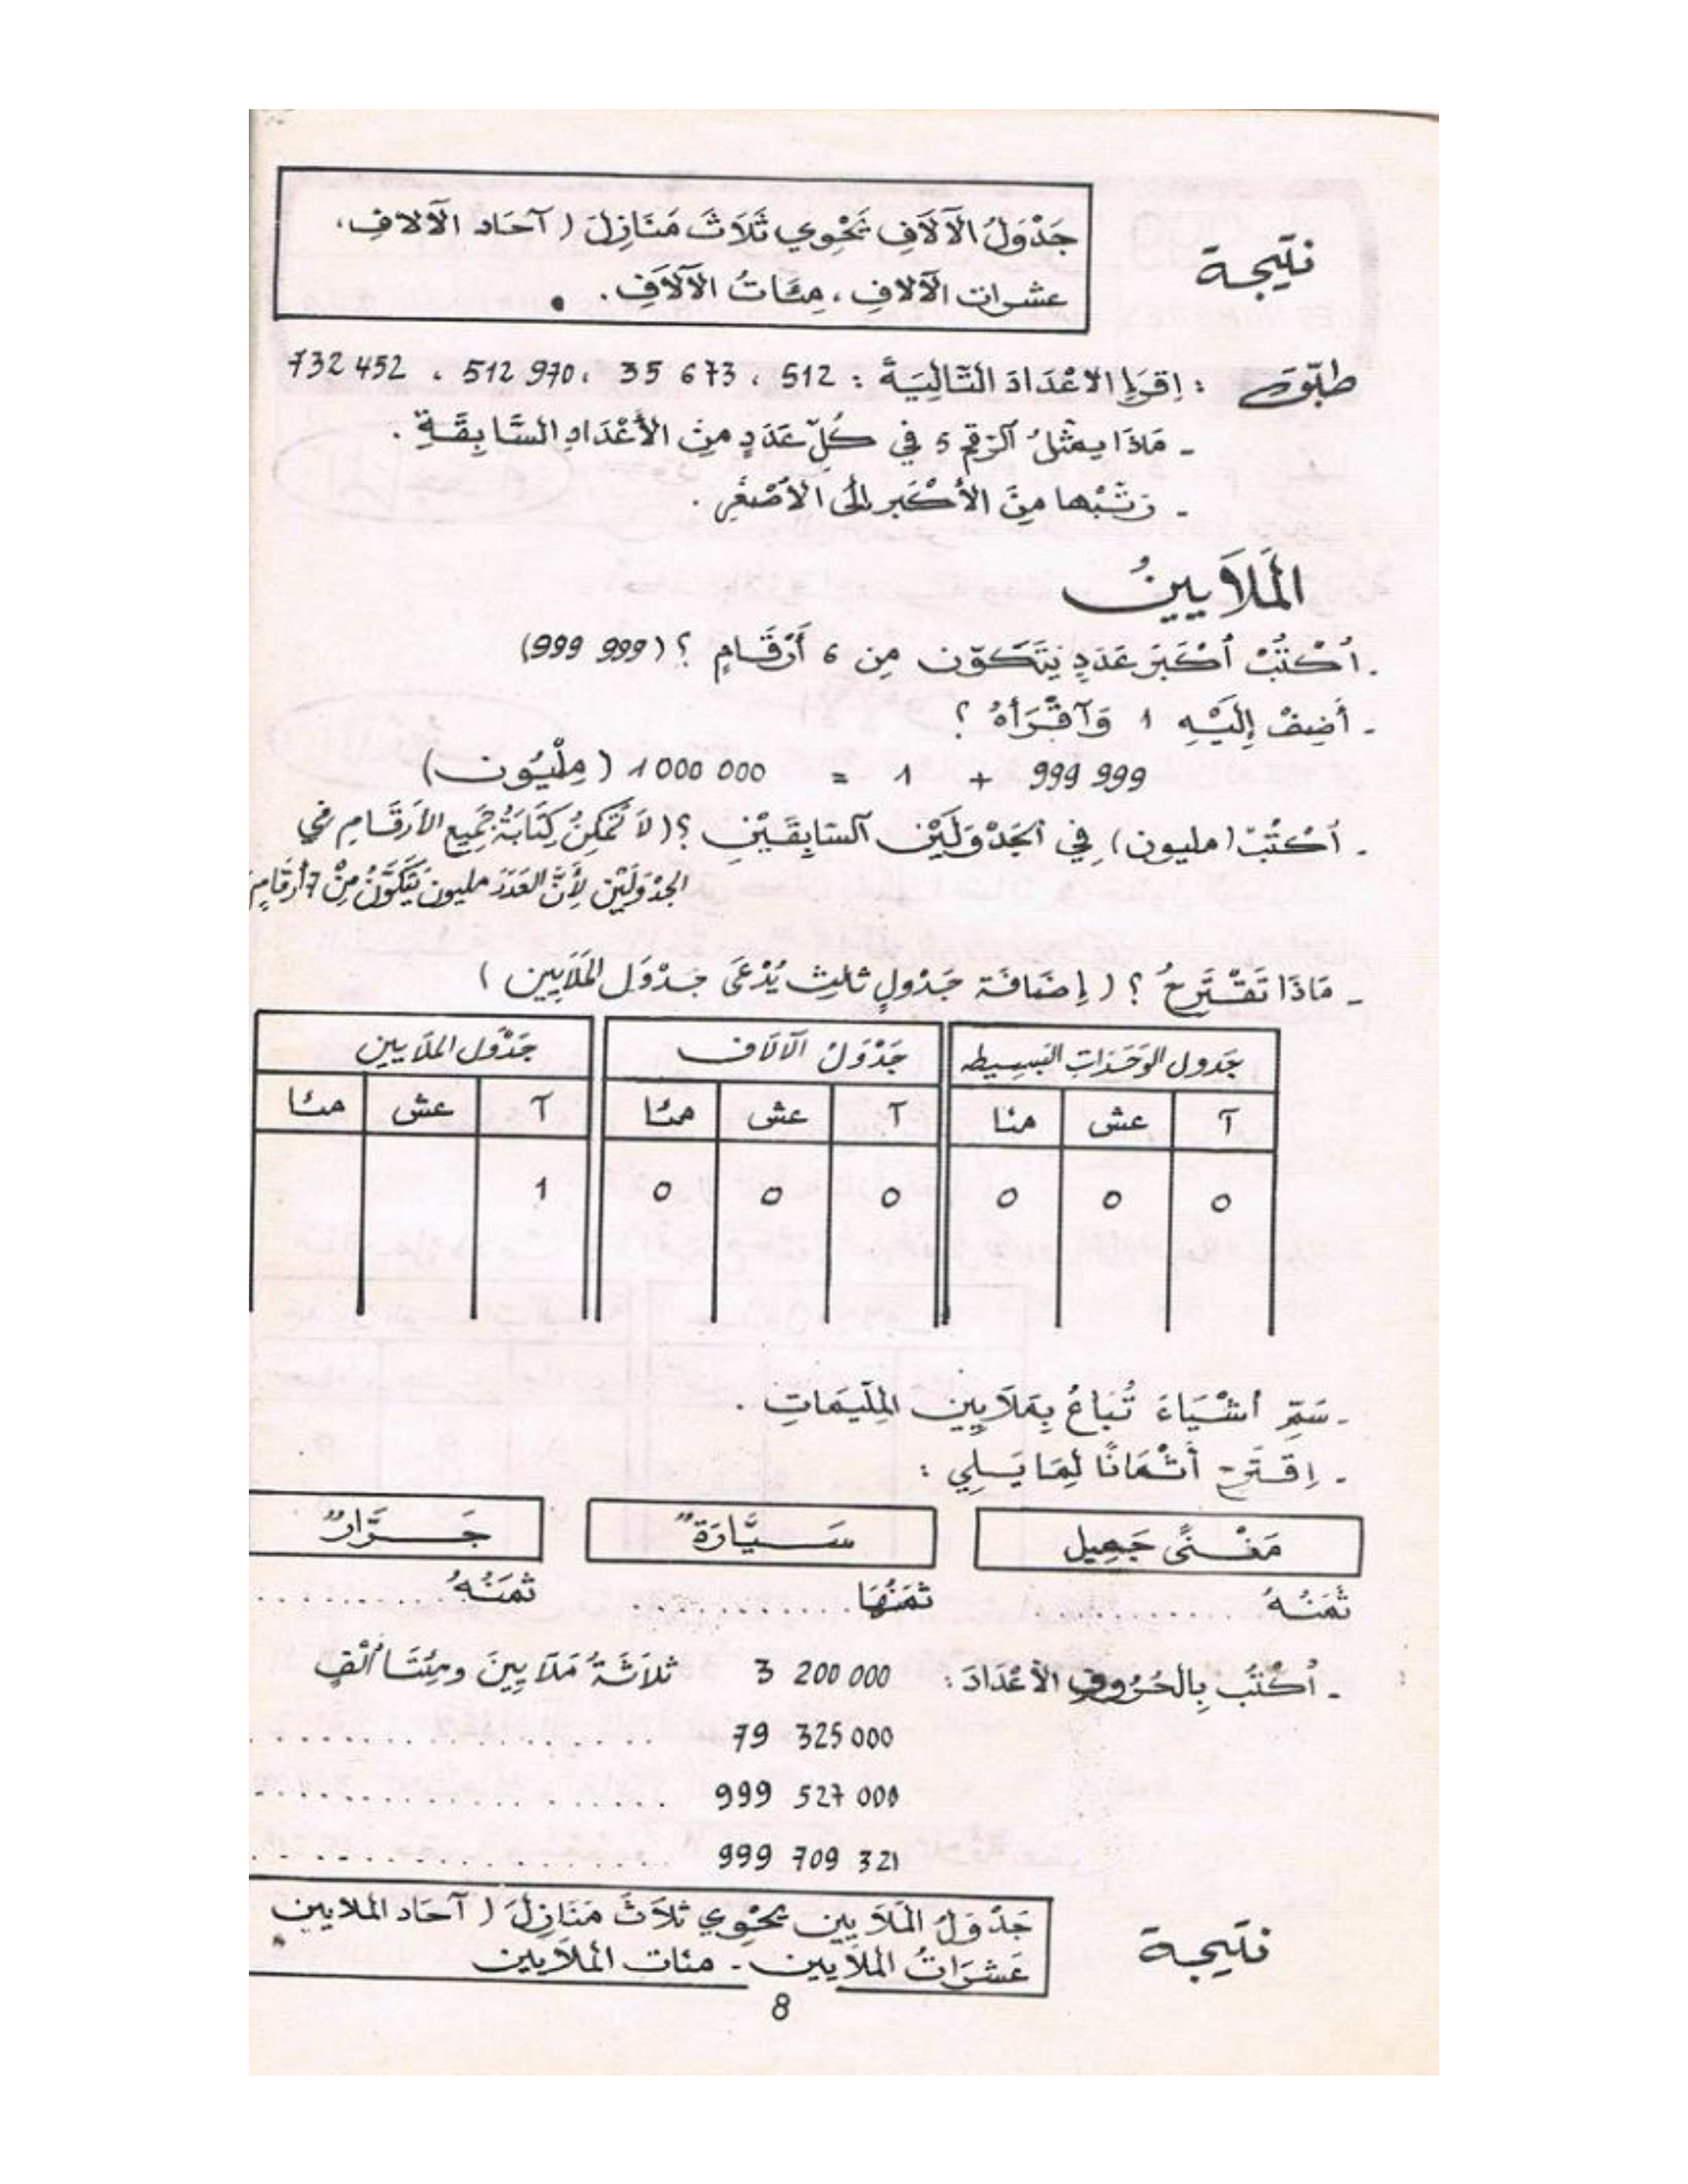 نتيجة
جَدْوَلُ الآلاَفِ يَحْوِي ثَلاَثَ مَنَازِلَ ( آحَاد الآلافِ،
عشرات الآلافِ ، مِئَاتُ الآلاَفِ .
طبّق : اِقرَإِ الأعْدَادَ التَّالِيَةَ : 512 ، 673 35 ، 970 512 ، 452 732
ـ مَاذَا يمثلُ الرّقم 5 في كُلِّ عَدَدٍ مِنَ الأَعْدَادِ السَّابِقَةِ .
ـ رَتِّبْها مِنَ الأَكْبَرِ إلى الأَصْغَرِ .
المَلاَيِينُ
ـ اُكْتُبْ أكْبَرَ عَدَدٍ يَتَكَوّن مِن 6 أَرْقَامٍ ؟ (999 999)
ـ أَضِفْ إِلَيْهِ 1 وَاقْرَأهُ ؟
999 999 + 1 = 1 000 000 ( مِلْيُون )
ـ اُكْتُبْ (مليون) فِي الجَدْوَلَيْنِ السَّابِقَيْنِ ؟ ( لاَ تُمْكِنُ كِتَابَةُ جَمِيعِ الأَرقَامِ في
الجدْوَلَيْنِ لِأَنَّ العَدَدَ مليون يَتَكَوَّنُ مِنْ 7 أرقَامٍ
ـ مَاذَا تَقْتَرِحُ ؟ ( إِضَافَة جَدْوَلٍ ثالِثٍ يُدْعَى جَدْوَل المَلَايِين )
جَدول الوَحَدَات البَسِيطه جَدْوَلُ الآلاَف جَدْوَل الملَايين
آ عش مئا آ عش مئا آ عش مئا
0 0 0 0 0 0 1
ـ سَمِّ أشْيَاءَ تُبَاعُ بِمَلاَيِينِ المِلِّيمَاتِ .
ـ اِقْتَرِحْ أَثْمَانًا لِمَا يَلِي :
مَغْنًى جَمِيل سَيَّارَةٌ جَرَّارٌ
ثَمَنُهُ .......... ثمَنُهَا .......... ثمَنُهُ ..........
ـ اُكْتُبْ بِالحُرُوفِ الأعْدَادَ : 3 200 000 ثلاَثَةُ مَلَايِينَ ومِئَتَا أَلْفٍ
79 325 000 ..................
999 527 000 ..................
999 709 321 ..................
نتيجة
جَدْوَلُ المَلاَيِين يَحْوِي ثلاَثَ مَنَازِلَ ( آحَاد الملايين
عَشَرَاتُ الملاَيين ـ مئات الملاَيين
8